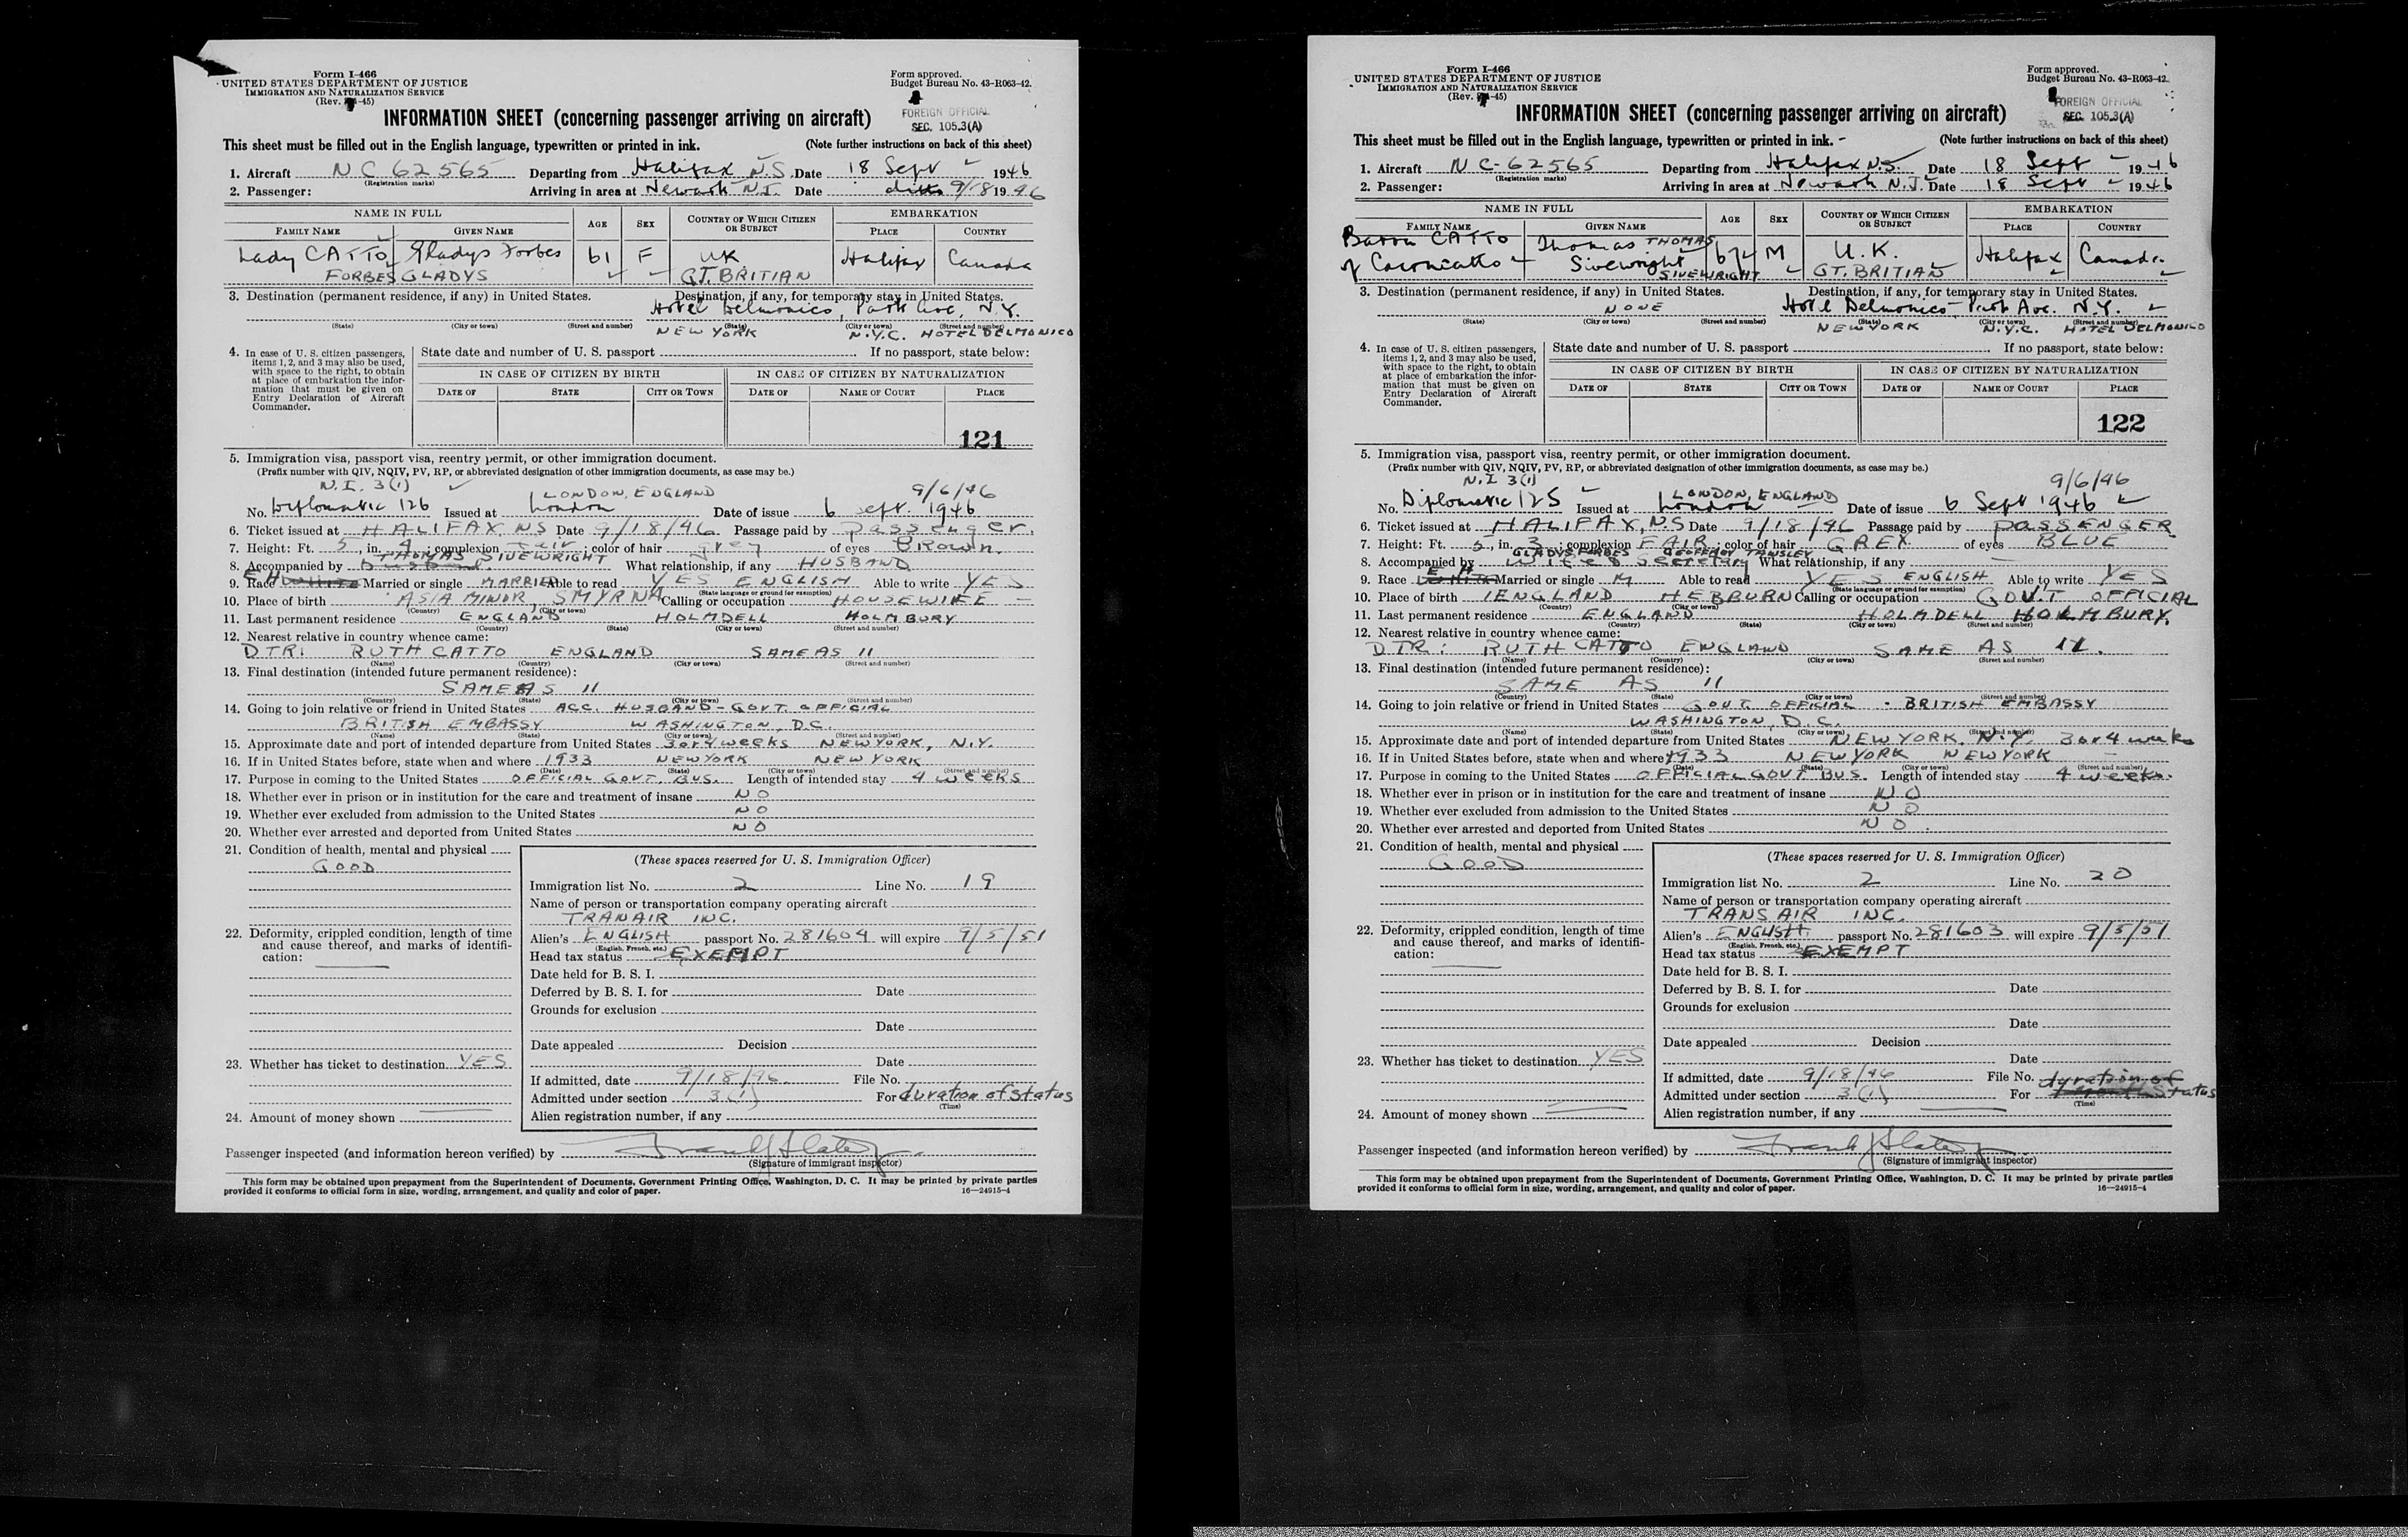 Form I-466
UNITED STATES DEPARTMENT OF JUSTICE
IMMIGRATION AND NATURALIZATION SERVICE
(Rev. -45)
Form approved.
Budget Bureau No. 43-R063-42.
FOREIGN OFFICIAL
SEC. 105.3(A)
INFORMATION SHEET (concerning passenger arriving on aircraft)
This sheet must be filled out in the English language, typewritten or printed in ink. (Note further instructions on back of this sheet)
1. Aircraft NC 62565 Departing from Halifax N.S. Date 18 Sept 1946
(Registration marks)
2. Passenger: Arriving in area at Newark N.J. Date ditto 9/18 1946
NAME IN FULL AGE SEX COUNTRY OF WHICH CITIZEN OR SUBJECT EMBARKATION
FAMILY NAME GIVEN NAME PLACE COUNTRY
Lady CATTO Gladys Forbes 61 F UK Halifax Canada
FORBES GLADYS GT. BRITIAN
3. Destination (permanent residence, if any) in United States. Destination, if any, for temporary stay in United States.
Hotel Delmonico, Park Ave, N.Y.
(State) (City or town) (Street and number) (State) (City or town) (Street and number)
NEW YORK N.Y.C. HOTEL DELMONICO
4. In case of U. S. citizen passengers, items 1, 2, and 3 may also be used, with space to the right, to obtain at place of embarkation the information that must be given on Entry Declaration of Aircraft Commander.
State date and number of U. S. passport If no passport, state below:
IN CASE OF CITIZEN BY BIRTH IN CASE OF CITIZEN BY NATURALIZATION
DATE OF STATE CITY OR TOWN DATE OF NAME OF COURT PLACE
121
5. Immigration visa, passport visa, reentry permit, or other immigration document.
(Prefix number with QIV, NQIV, PV, RP, or abbreviated designation of other immigration documents, as case may be.)
N.I. 3(1) LONDON, ENGLAND 9/6/46
No. Diplomatic 126 Issued at London Date of issue 6 Sept. 1946
6. Ticket issued at HALIFAX, NS Date 9/18/46 Passage paid by passenger.
7. Height: Ft. 5, in. 4; complexion Fair; color of hair grey of eyes Brown.
THOMAS SIVEWRIGHT
8. Accompanied by Husband. What relationship, if any HUSBAND
9. Race Married or single MARRIED Able to read YES ENGLISH Able to write YES
(State language or ground for exemption)
10. Place of birth ASIA MINOR, SMYRNA Calling or occupation HOUSEWIFE
(Country) (City or town)
11. Last permanent residence ENGLAND HOLMDELL HOLMBURY
(Country) (State) (City or town) (Street and number)
12. Nearest relative in country whence came:
DTR: RUTH CATTO ENGLAND SAME AS 11
(Name) (Country) (City or town) (Street and number)
13. Final destination (intended future permanent residence):
SAME AS 11
(Country) (State) (City or town) (Street and number)
14. Going to join relative or friend in United States ACC. HUSBAND - GOVT. OFFICIAL
BRITISH EMBASSY WASHINGTON, D.C.
(Name) (State) (City or town) (Street and number)
15. Approximate date and port of intended departure from United States 3 or 4 weeks NEW YORK, N.Y.
16. If in United States before, state when and where 1933 NEW YORK NEW YORK
(Date) (State) (City or town) (Street and number)
17. Purpose in coming to the United States OFFICIAL GOVT. BUS. Length of intended stay 4 weeks
18. Whether ever in prison or in institution for the care and treatment of insane NO
19. Whether ever excluded from admission to the United States NO
20. Whether ever arrested and deported from United States NO
21. Condition of health, mental and physical
GOOD
22. Deformity, crippled condition, length of time and cause thereof, and marks of identification:
23. Whether has ticket to destination YES
24. Amount of money shown
(These spaces reserved for U. S. Immigration Officer)
Immigration list No. 2 Line No. 19
Name of person or transportation company operating aircraft
TRANAIR INC.
Alien's ENGLISH passport No. 281604 will expire 9/5/51
(English, French, etc.)
Head tax status EXEMPT
Date held for B. S. I.
Deferred by B. S. I. for Date
Grounds for exclusion
Date
Date appealed Decision
Date
If admitted, date 9/18/46 File No.
Admitted under section 3(1) For duration of status
(Time)
Alien registration number, if any
Passenger inspected (and information hereon verified) by Frank J Slater
(Signature of immigrant inspector)
This form may be obtained upon prepayment from the Superintendent of Documents, Government Printing Office, Washington, D. C. It may be printed by private parties
provided it conforms to official form in size, wording, arrangement, and quality and color of paper. 16—24915-4
Form I-466
UNITED STATES DEPARTMENT OF JUSTICE
IMMIGRATION AND NATURALIZATION SERVICE
(Rev. -45)
Form approved.
Budget Bureau No. 43-R063-42.
FOREIGN OFFICIAL
SEC. 105.3(A)
INFORMATION SHEET (concerning passenger arriving on aircraft)
This sheet must be filled out in the English language, typewritten or printed in ink. (Note further instructions on back of this sheet)
1. Aircraft NC-62565 Departing from Halifax N.S. Date 18 Sept 1946
(Registration marks)
2. Passenger: Arriving in area at Newark N.J. Date 18 Sept 1946
NAME IN FULL AGE SEX COUNTRY OF WHICH CITIZEN OR SUBJECT EMBARKATION
FAMILY NAME GIVEN NAME PLACE COUNTRY
Baron CATTO Thomas THOMAS 67 M U.K. Halifax Canada
of Cairncatto Sivewright SIVEWRIGHT GT. BRITIAN
3. Destination (permanent residence, if any) in United States. Destination, if any, for temporary stay in United States.
NONE Hotel Delmonico Park Ave. N.Y.
(State) (City or town) (Street and number) (State) (City or town) (Street and number)
NEW YORK N.Y.C. HOTEL DELMONICO
4. In case of U. S. citizen passengers, items 1, 2, and 3 may also be used, with space to the right, to obtain at place of embarkation the information that must be given on Entry Declaration of Aircraft Commander.
State date and number of U. S. passport If no passport, state below:
IN CASE OF CITIZEN BY BIRTH IN CASE OF CITIZEN BY NATURALIZATION
DATE OF STATE CITY OR TOWN DATE OF NAME OF COURT PLACE
122
5. Immigration visa, passport visa, reentry permit, or other immigration document.
(Prefix number with QIV, NQIV, PV, RP, or abbreviated designation of other immigration documents, as case may be.)
N.I 3(1) LONDON, ENGLAND 9/6/46
No. Diplomatic 125 Issued at London Date of issue 6 Sept 1946
6. Ticket issued at HALIFAX, NS Date 9/18/46 Passage paid by PASSENGER
7. Height: Ft. 5, in. 3; complexion FAIR; color of hair GREY of eyes BLUE
GLADYS FORBES GEOFFREY TANSLEY
8. Accompanied by Wife & Secretary What relationship, if any
9. Race Married or single M Able to read YES ENGLISH Able to write YES
(State language or ground for exemption)
10. Place of birth ENGLAND HEBBURN Calling or occupation GOVT OFFICIAL
(Country) (City or town)
11. Last permanent residence ENGLAND HOLMDELL HOLMBURY.
(Country) (State) (City or town) (Street and number)
12. Nearest relative in country whence came:
DTR: RUTH CATTO ENGLAND SAME AS 11.
(Name) (Country) (City or town) (Street and number)
13. Final destination (intended future permanent residence):
SAME AS 11
(Country) (State) (City or town) (Street and number)
14. Going to join relative or friend in United States GOVT. OFFICIAL - BRITISH EMBASSY
WASHINGTON, D.C.
(Name) (State) (City or town) (Street and number)
15. Approximate date and port of intended departure from United States NEW YORK, N.Y. 3 or 4 weeks
16. If in United States before, state when and where 1933 NEW YORK NEW YORK
(State) (City or town) (Street and number)
17. Purpose in coming to the United States OFFICIAL GOVT BUS. Length of intended stay 4 weeks.
18. Whether ever in prison or in institution for the care and treatment of insane NO
19. Whether ever excluded from admission to the United States NO
20. Whether ever arrested and deported from United States NO.
21. Condition of health, mental and physical
GOOD
22. Deformity, crippled condition, length of time and cause thereof, and marks of identification:
23. Whether has ticket to destination YES
24. Amount of money shown
(These spaces reserved for U. S. Immigration Officer)
Immigration list No. 2 Line No. 20
Name of person or transportation company operating aircraft
TRANSAIR INC.
Alien's ENGLISH passport No. 281603 will expire 9/5/51
(English, French, etc.)
Head tax status EXEMPT
Date held for B. S. I.
Deferred by B. S. I. for Date
Grounds for exclusion
Date
Date appealed Decision
Date
If admitted, date 9/18/46 File No. duration of
Admitted under section 3(1) For Status
(Time)
Alien registration number, if any
Passenger inspected (and information hereon verified) by Frank J Slater
(Signature of immigrant inspector)
This form may be obtained upon prepayment from the Superintendent of Documents, Government Printing Office, Washington, D. C. It may be printed by private parties
provided it conforms to official form in size, wording, arrangement, and quality and color of paper. 16—24915-4